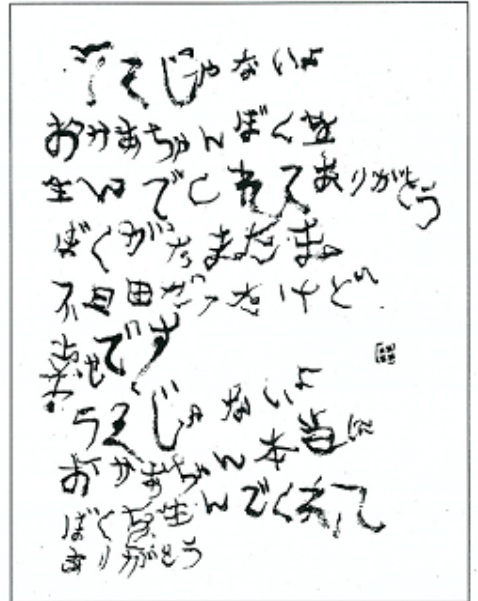 うそじゃないよ
おかあちゃんぼくを
生んでくれてありがとう
ぼくがたまたま
不自由だったけど
幸せです
うそじゃないよ
おかあちゃん本当に
ぼくを生んでくれて
ありがとう